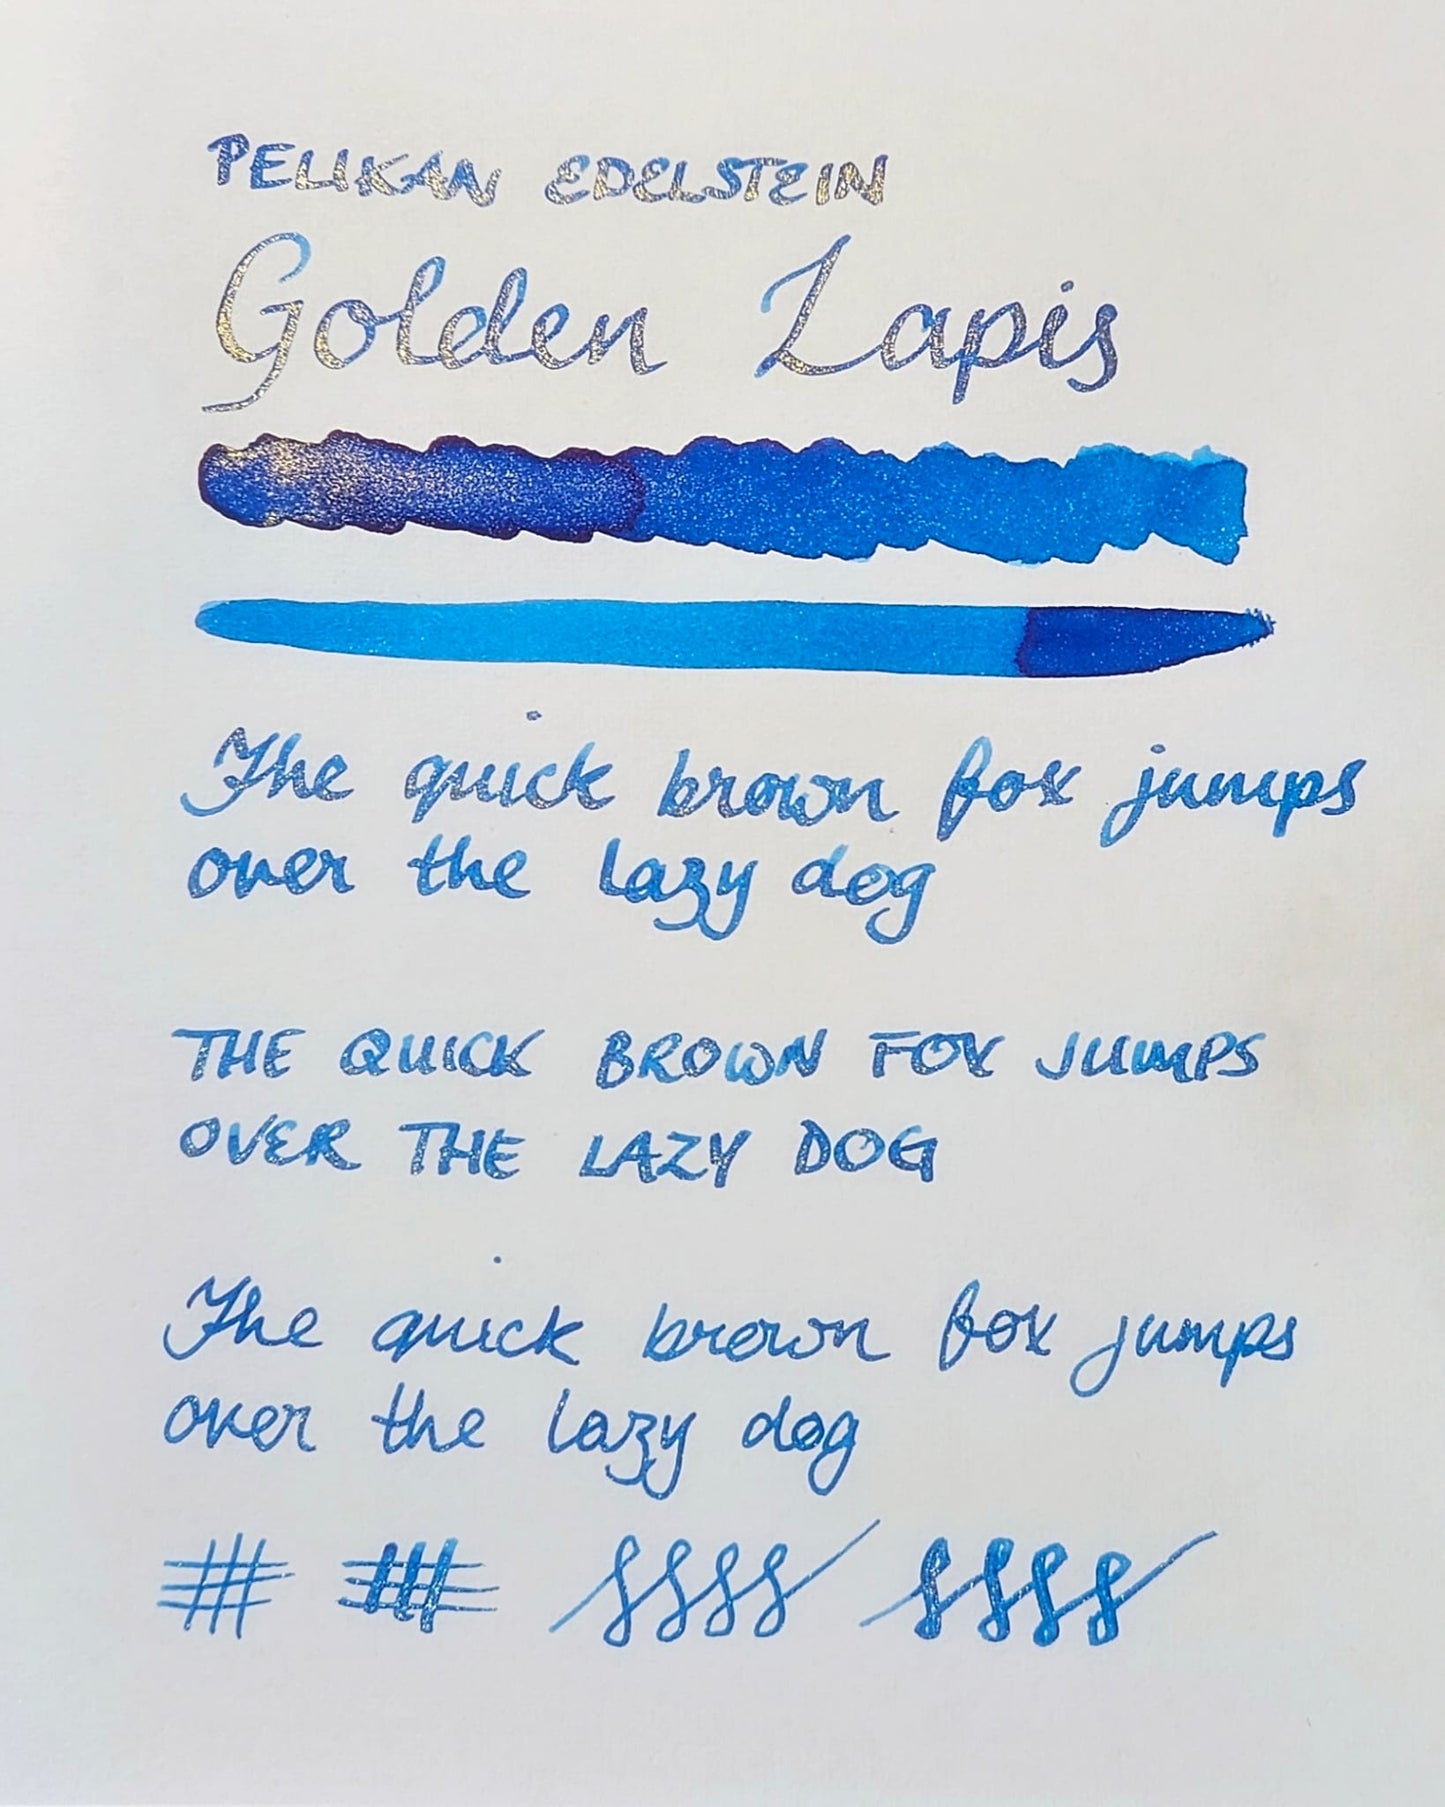 PELIKAN EDELSTEIN
Golden Lapis
The quick brown fox jumps
over the lazy dog
THE QUICK BROWN FOX JUMPS
OVER THE LAZY DOG
The quick brown fox jumps
over the lazy dog